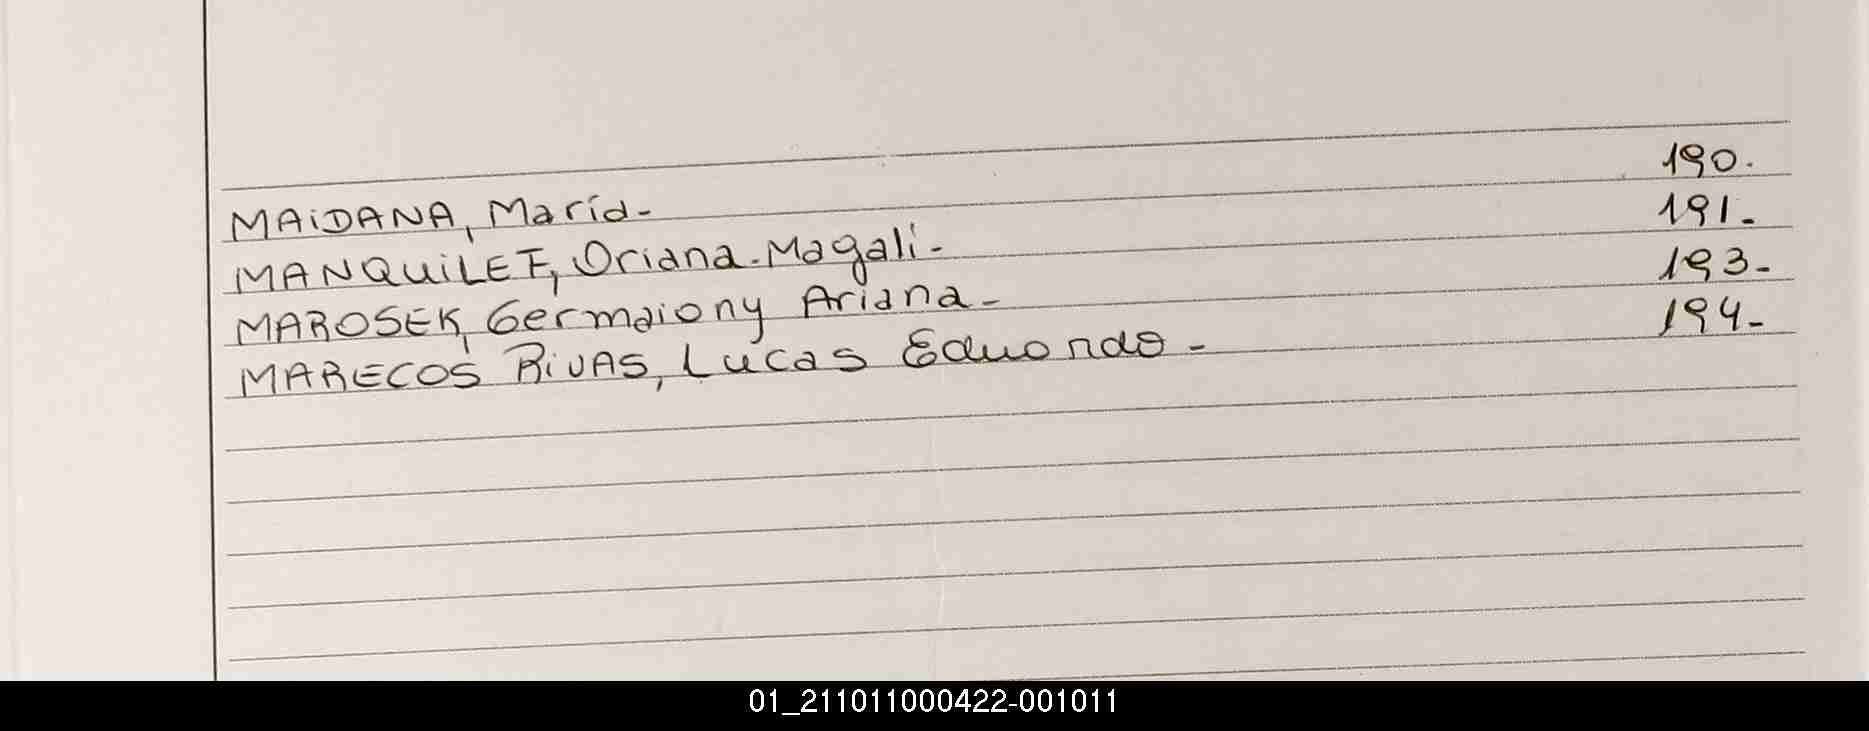 MAiDANA, María- 190.
MANQUiLEF, Oriana-Magali- 191-
MAROSEK, Germaiony Ariana- 193-
MARECOS RiVAS, Lucas Eduardo- 194-
01_211011000422-001011